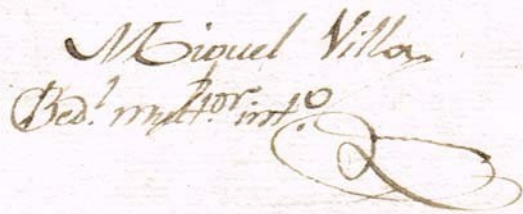 Miguel Villa
Bed.l mult.or int.o